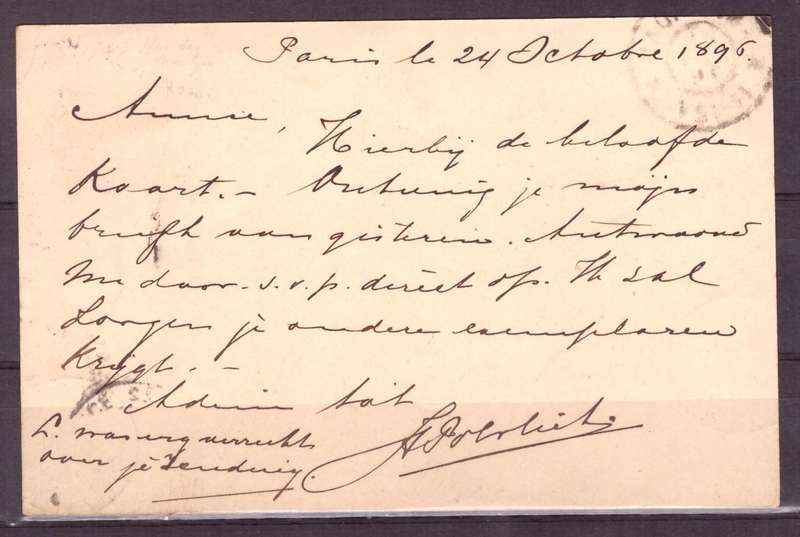 Paris le 24 Octobre 1896.
Annie,
Hierbij de beloofde
Kaart. - Ontving je mijn
briefk van gisteren. Antwoord
me daar - s.v.p. direct op. Ik zal
zorgen je andere exemplaren
krijgt. -
Adieu tot
L. was erg verrukt
over je zending.